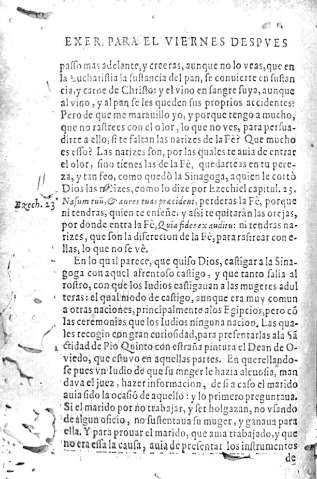 EXER. PARA EL VIERNES DESPVES
passo mas adelante, y creeras, aunque no lo veas, que en
la Eucharistia la sustancia del pan, se conuierte en sustan
cia, y carne de Christo: y el vino en sangre suya, aunque
al vino, y al pan se les queden sus propios accidentes?
Pero de que me marauillo yo, y porque tengo a mucho,
que no rastrees con el olor, lo que no ves, para persua-
dirte a ello, si te faltan las narizes de la Fè? Que mucho
es esso? Las narizes son, por las quales te auia de entrar
el olor, sino tienes las de la Fè, quedarteas en tu pere-
za, y tan feo, como quedò la Sinagoga, a quien le cortò
Dios las narizes, como lo dize por Ezechiel capitul. 23.
Ezech. 23
Nasum tuũ, & aures tuas præcident, perderas la Fè, porque
ni tendras, quien te enseñe: y assi te quitaràn las orejas,
por donde entra la Fè, Quia fides ex auditu: ni tendras na-
rizes, que son la discrecion de la Fè, para rastrear con e-
llas, lo que no se vè.
En lo qual parece, que quiso Dios, castigar a la Sina-
goga con aquel afrentoso castigo, y que tanto salia al
rostro, con que los Iudios castigauan a las mugeres adul
teras: el qual modo de castigo, aunque era muy comun
a otras naciones, principalmente a los Egipcios, pero cõ
las ceremonias que los Iudios ninguna nacion. Las qua-
les recogio con gran curiosidad, para presentarlas a la Sã
ctidad de Pio Quinto con estraña pintura el Dean de O-
uiedo, que estuuo en aquellas partes. En querellando-
se pues vn Iudio de que su muger le hazia aleuosia, man
daua el juez, hazer informacion, de si a caso el marido
auia sido la ocasiõ de aquello: y lo primero preguntaua.
Si el marido por no trabajar, y ser holgazan, no vsando
de algun oficio, no sustentaua su muger, y ganaua para
ella. Y para prouar el marido, que auia trabajado, y que
no era essa la causa, auia de presentar los instrumentos
de